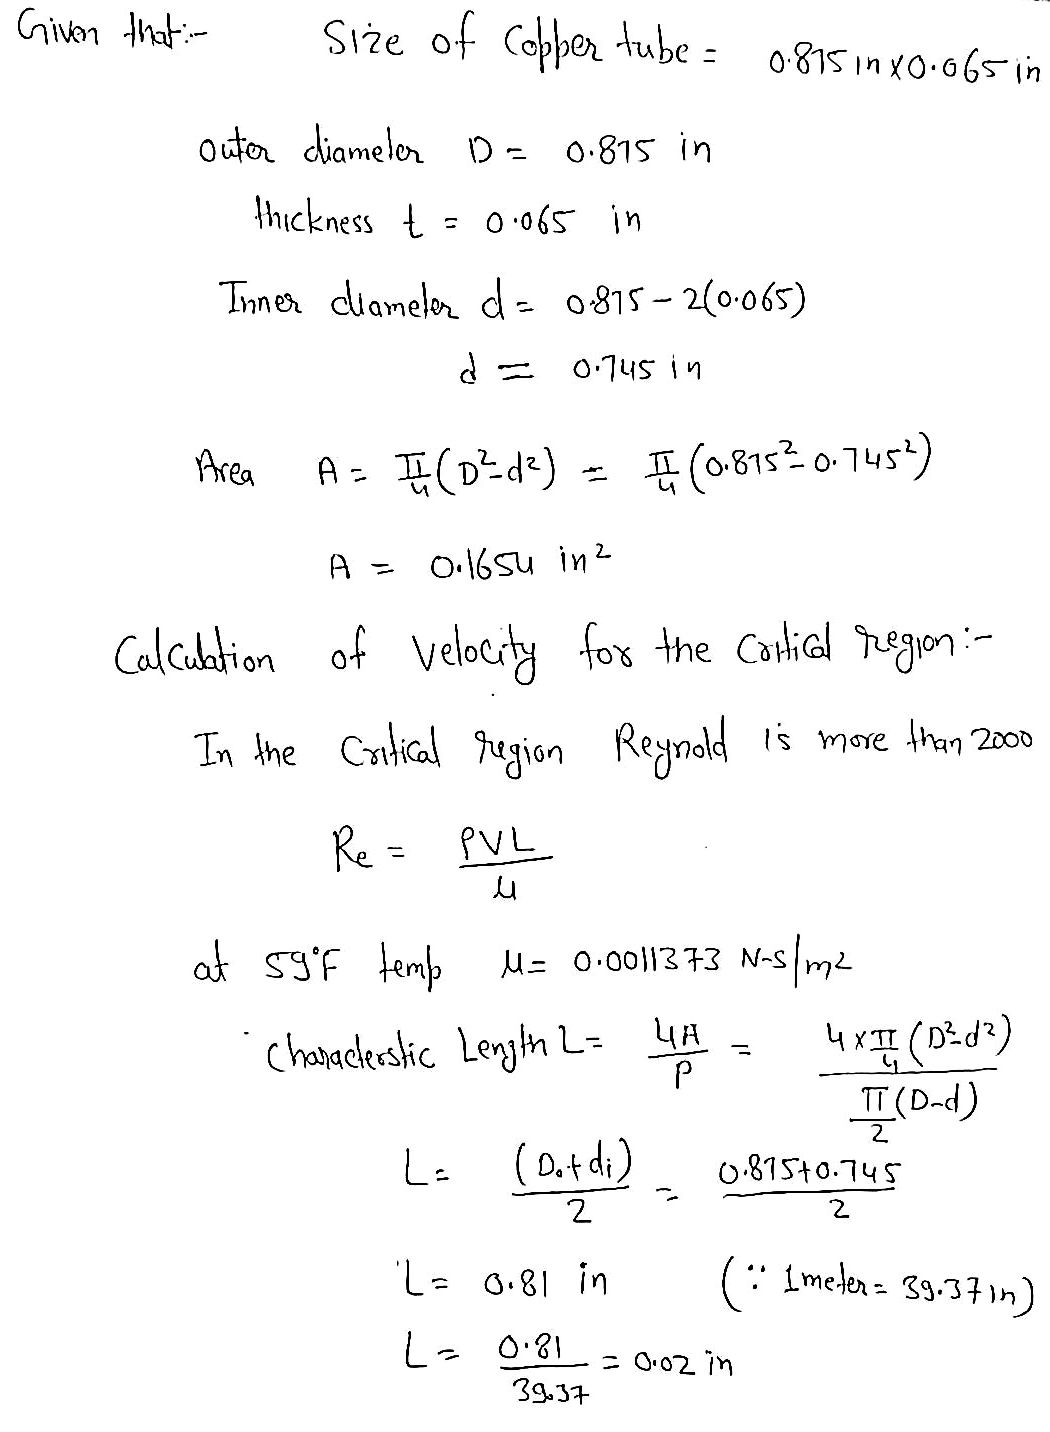 Given that:- Size of Copper tube = 0.875 in x 0.065 in
outer diameter D = 0.875 in
thickness t = 0.065 in
Inner diameter d = 0.875 - 2(0.065)
d = 0.745 in
Area A = π/4 (D²-d²) = π/4 (0.875² - 0.745²)
A = 0.1654 in²
Calculation of velocity for the critical region:-
In the critical region Reynold is more than 2000
Re = ρVL/μ
at 59°F temp μ = 0.0011373 N-s/m2
Characterstic Length L = 4A/P = 4 x π/4 (D²-d²) / π/2 (D-d)
L = (Do+di)/2 = 0.875+0.745/2
L = 0.81 in (∵ 1meter = 39.37 in)
L = 0.81/39.37 = 0.02 in